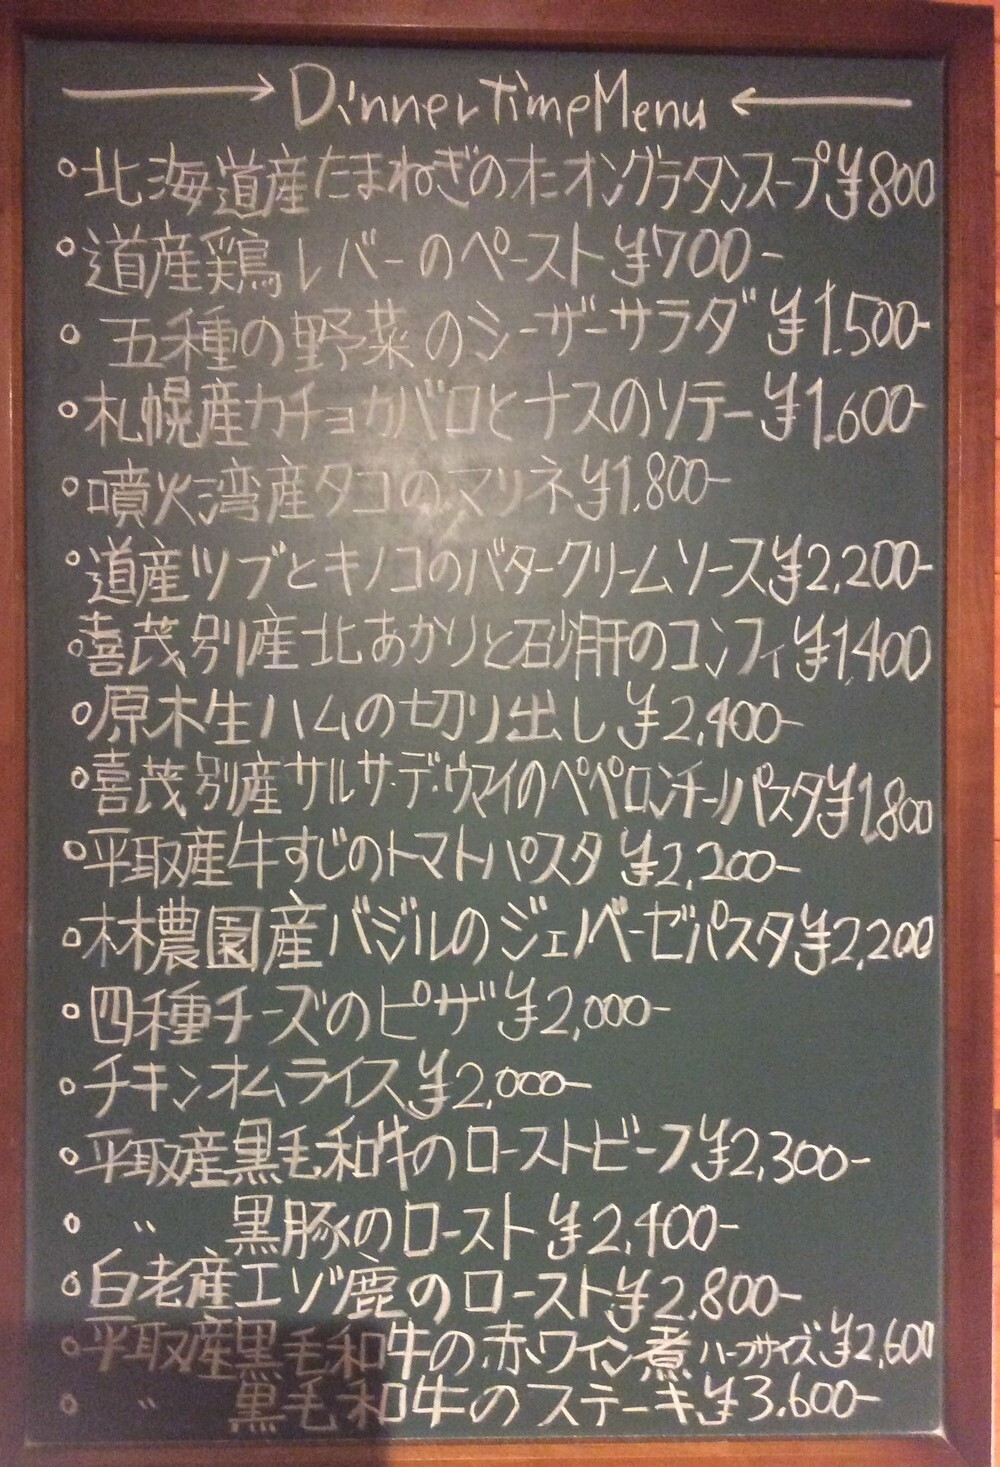 → Dinner Time Menu ←
○北海道産たまねぎのオニオングラタンスープ¥800
○道産鶏レバーのペースト¥700-
○五種の野菜のシーザーサラダ ¥1.500-
○札幌産カチョカバロとナスのソテー¥1.600-
○噴火湾産タコのマリネ¥1.800-
○道産ツブとキノコのバタークリームソース¥2,200-
○喜茂別産北あかりと砂肝のコンフィ¥1.400
○原木生ハムの切り出し¥2,400-
○喜茂別産サルサ・デ・ウマイのペペロンチーノパスタ¥1,800
○平取産牛すじのトマトパスタ ¥2,200-
○林農園産バジルのジェノベーゼパスタ¥2,200
○四種チーズのピザ¥2,000-
○チキンオムライス¥2,000-
○平取産黒毛和牛のローストビーフ¥2,300-
○ 〃 黒豚のロースト¥2,400-
○白老産エゾ鹿のロースト¥2,800-
○平取産黒毛和牛の赤ワイン煮 ハーフサイズ¥2,600
○ 〃 黒毛和牛のステーキ¥3.600-